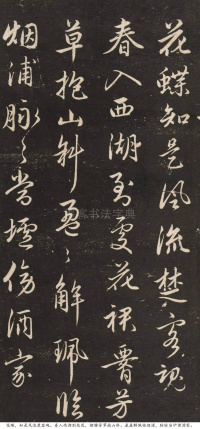 花蝶知是風流楚客魂
春入西湖到處花裙腰芳
草抱山斜盈々解珮臨
烟浦脉々當壚傍酒家
书法字典
花蝶，知是风流楚客魂。春入西湖到处花，裙腰芳草抱山斜。盈盈解佩临烟浦，脉脉当垆傍酒家。